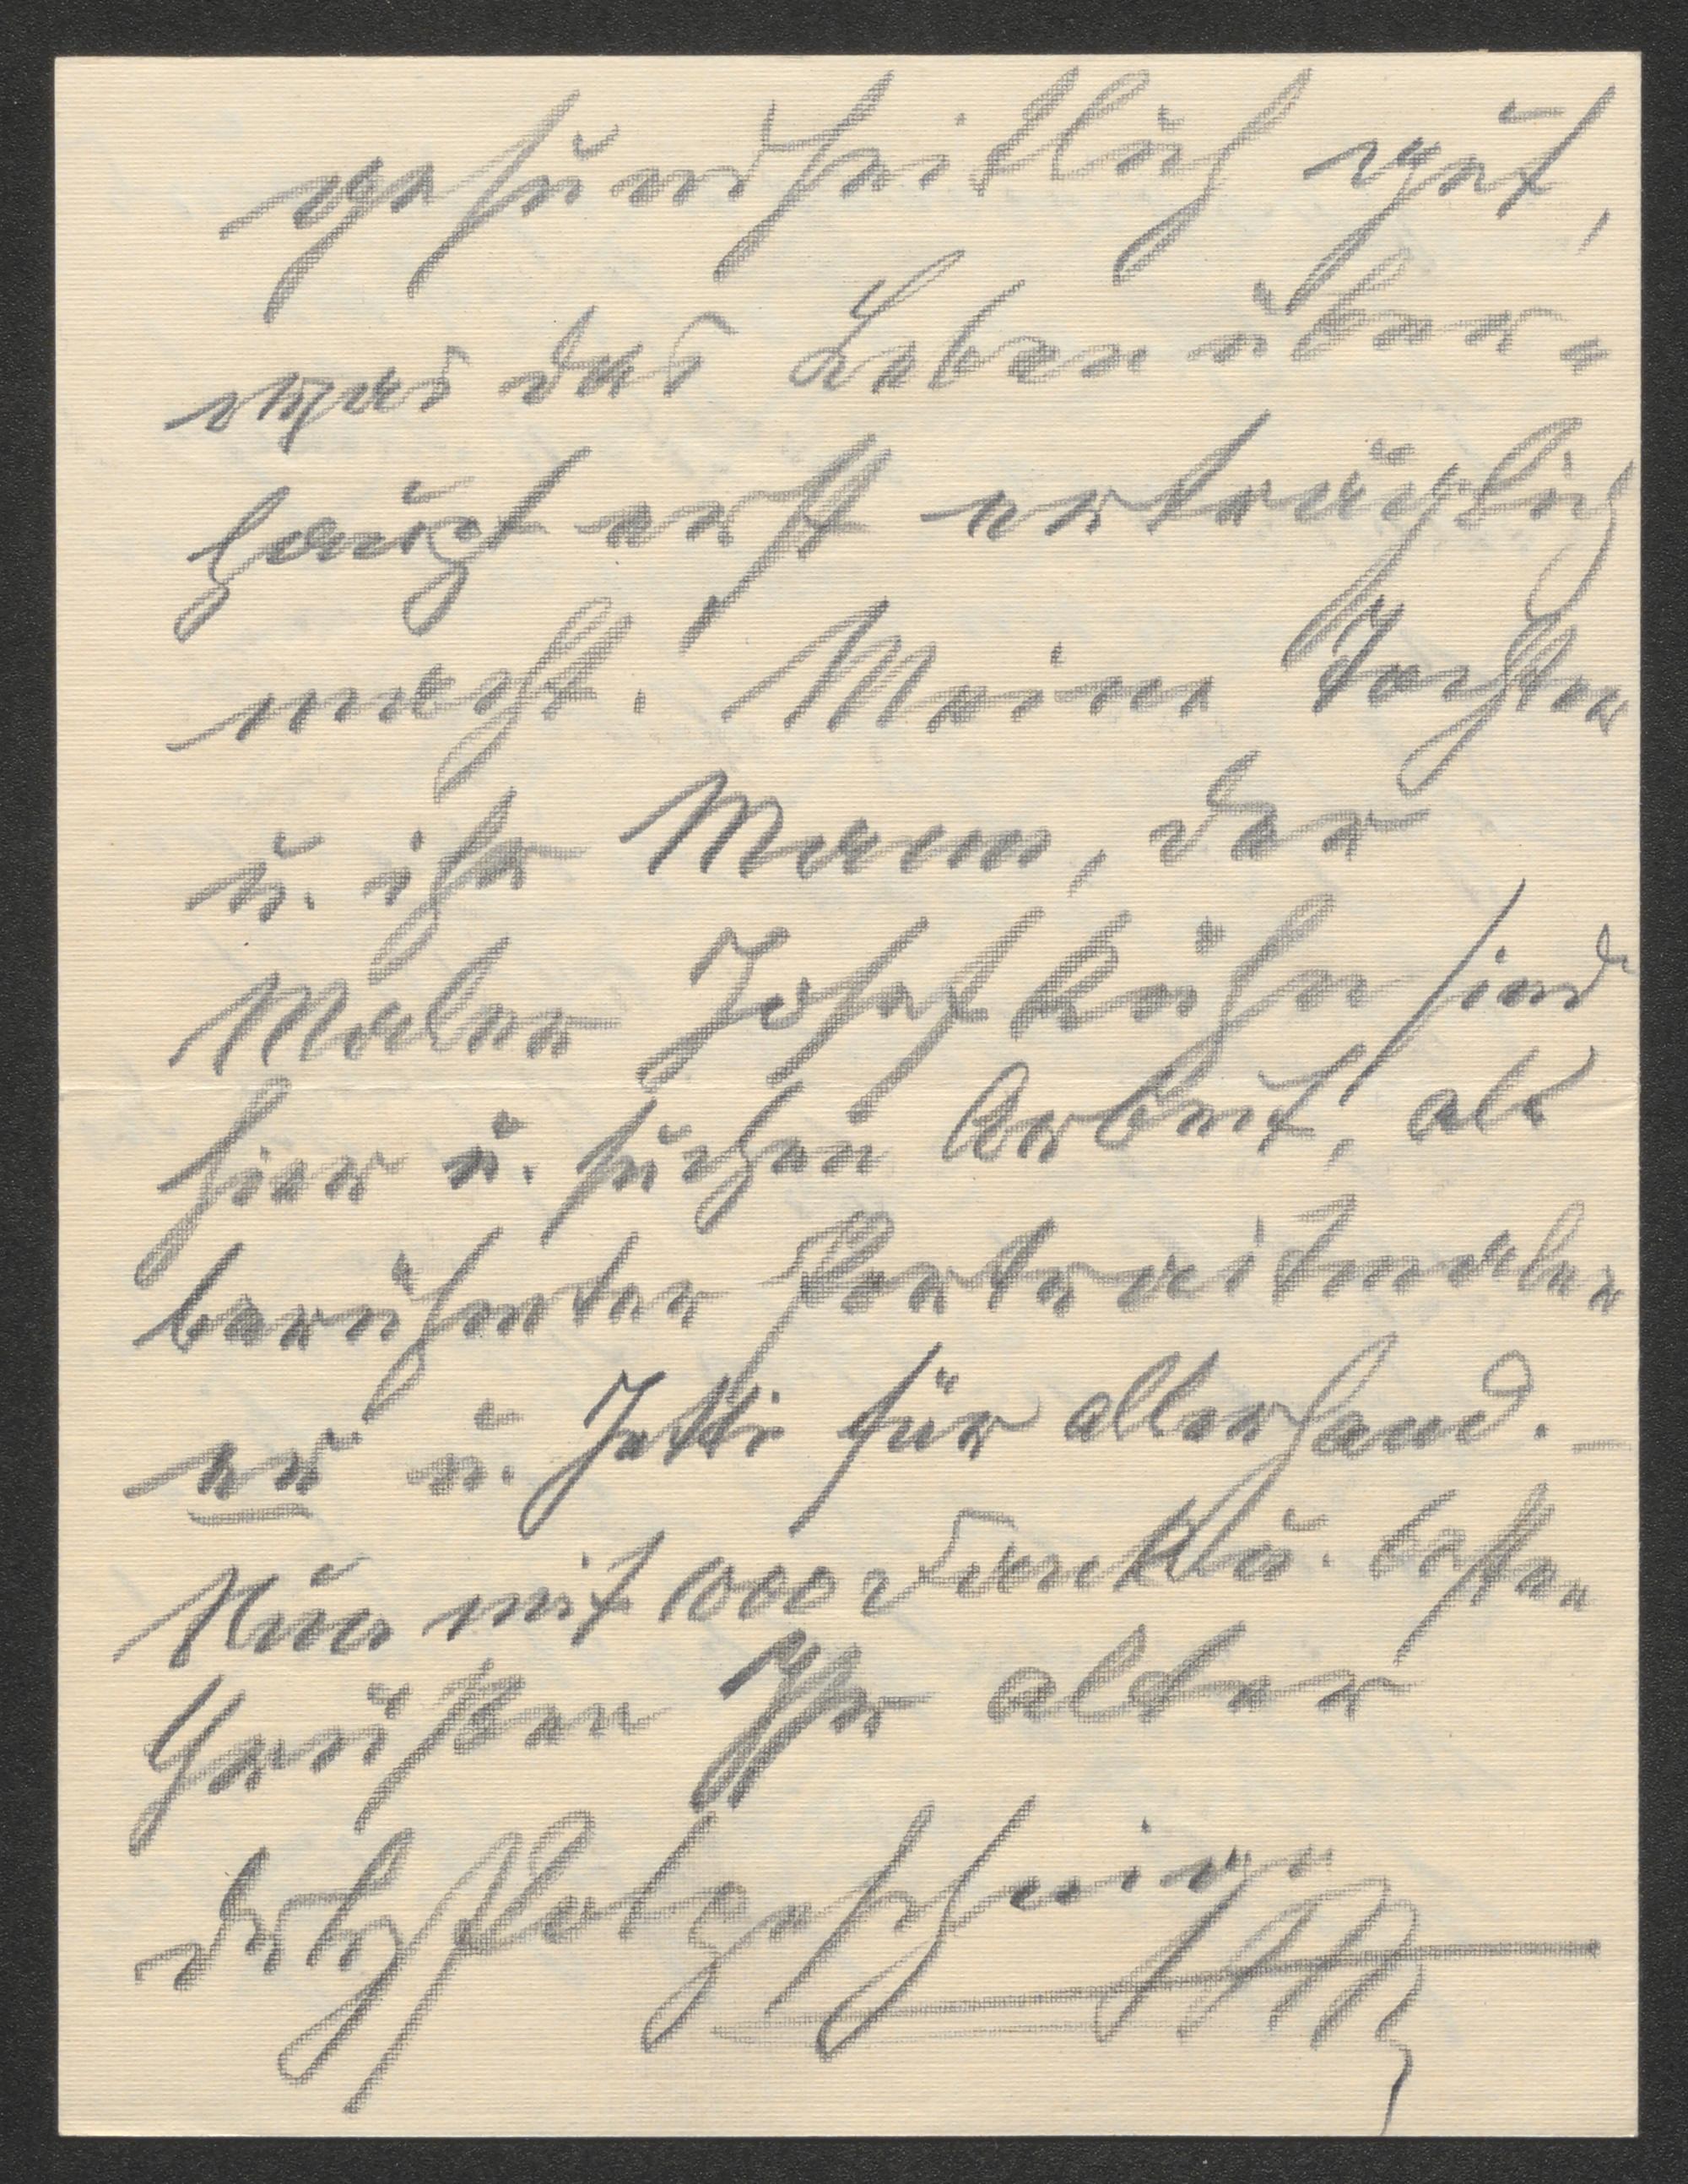 gesundheitlich gut,
was das Leben über-
haupt erst erträglich
macht. Meine Tochter
u. ihr Mann, der
Maler Josef Kühn sind
hier u. suchen Arbeit, als
berühmter Portraitmaler
er u. Jetti für allerhand. —
Nun mit 1000 Dank u. besten
Grüßen Ihr alter